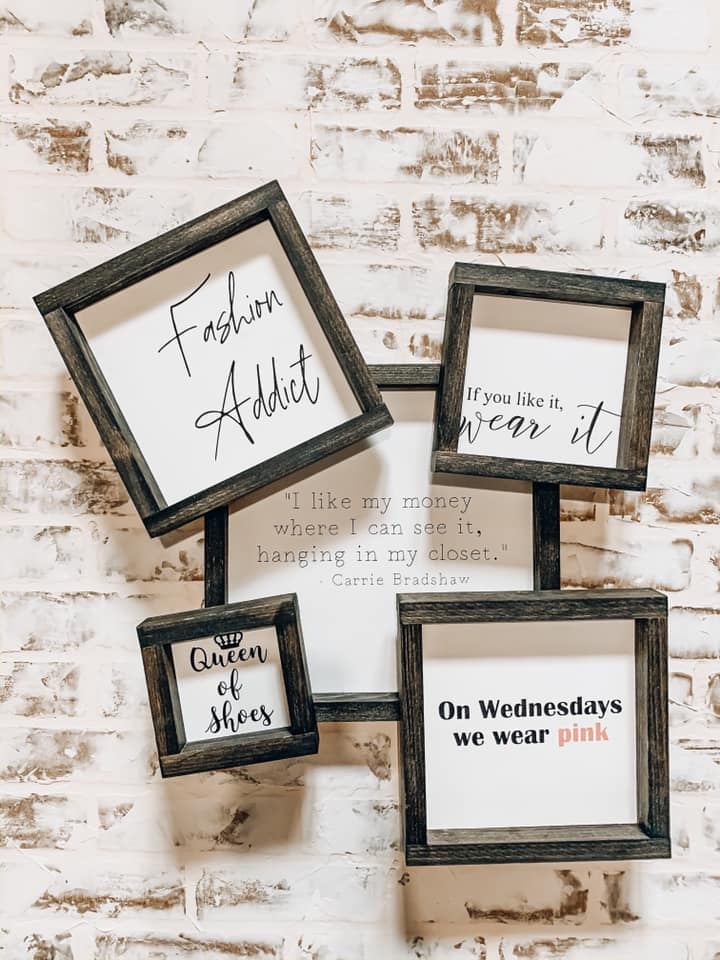 Fashion
Addict
If you like it,
wear it
"I like my money
where I can see it,
hanging in my closet."
- Carrie Bradshaw
Queen
of
Shoes
On Wednesdays
we wear pink